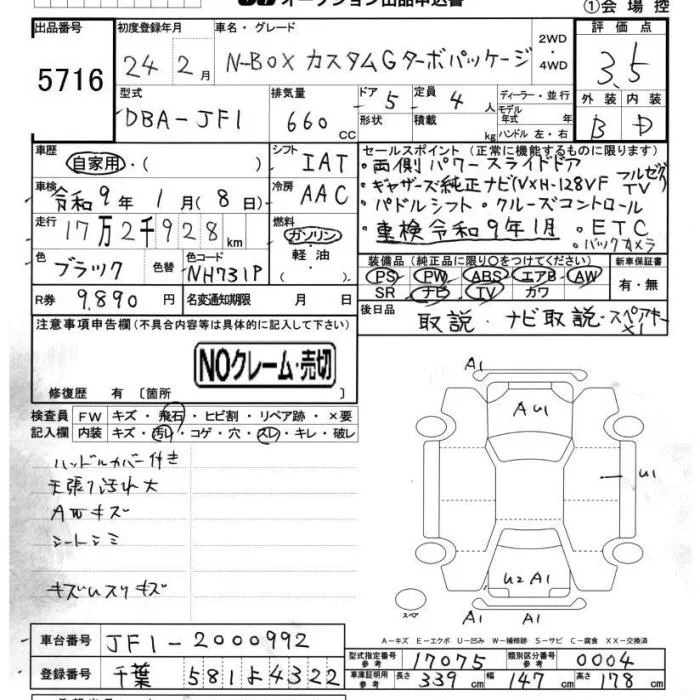 オークション出品申込書 ①会場控
出品番号 初度登録年月 車名・グレード 2WD・4WD 評価点
5716 24 2月 N-BOX カスタムGターボパッケージ 3.5
型式 排気量 ドア 5 定員 4人 ディーラー・並行 外装 内装
DBA-JF1 660cc 形状 積載 kg モデル年式 年 ハンドル 左・右 B D
車歴 自家用・( ) シフト IAT セールスポイント(正常に機能するものに限ります)
・両側パワースライドドア
車検 令和9年1月(8日) 冷房 AAC ・ギャザーズ純正ナビ(VXH-128VF フルセグTV)
・パドルシフト・クルーズコントロール
走行 17万2千928km 燃料 ガソリン・軽油・( ) ・車検令和9年1月・ETC
・バックカメラ
色 ブラック 色替 色コード NH731P 装備品(純正品に限り○をつけてください) 新車保証書
PS PW ABS エアB AW 有・無
SR ナビ TV カワ
R券 9,890円 名変通知期限 月 日 後日品
取説・ナビ取説・スペアキーx1
注意事項申告欄(不具合内容等は具体的に記入して下さい)
NOクレーム・売切
修復歴 有[箇所 ]
検査員記入欄 FW キズ・飛石・ヒビ割・リペア跡・×要
内装 キズ・汚レ・コゲ・穴・スレ・キレ・破レ
ハンドルカバー付き
天張り汚れ大
AWキズ
シートシミ
キズUスリキズ
A1
AU1
U1
U2 A1
A1 A1
スペア
A-キズ E-エクボ U-凹み W-補修跡 S-サビ C-腐食 XX-交換済
車台番号 JF1-2000992 型式指定番号参考 17075 類別区分番号参考 0004
登録番号 千葉 581よ4322 車庫証明用参考 長さ 339cm 幅 147cm 高さ 178cm